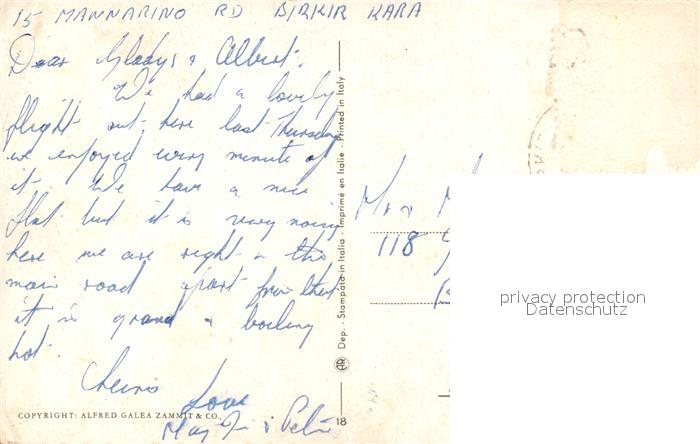 15 MANNARINO RD BIRKIR KARA
Dear Gladys & Albert.
We had a lovely
flight out here last Thursday
we enjoyed every minute of
it. We have a nice
flat but it is very noisy
here we are right on the
main road apart from that
it is grand & boiling
hot.
Cheerio
Love
May
COPYRIGHT: ALFRED GALEA ZAMMIT & CO.,
18
Dep. - Stampata in Italia - Imprimé en Italie - Printed in Italy
Mr &
118
privacy protection
Datenschutz